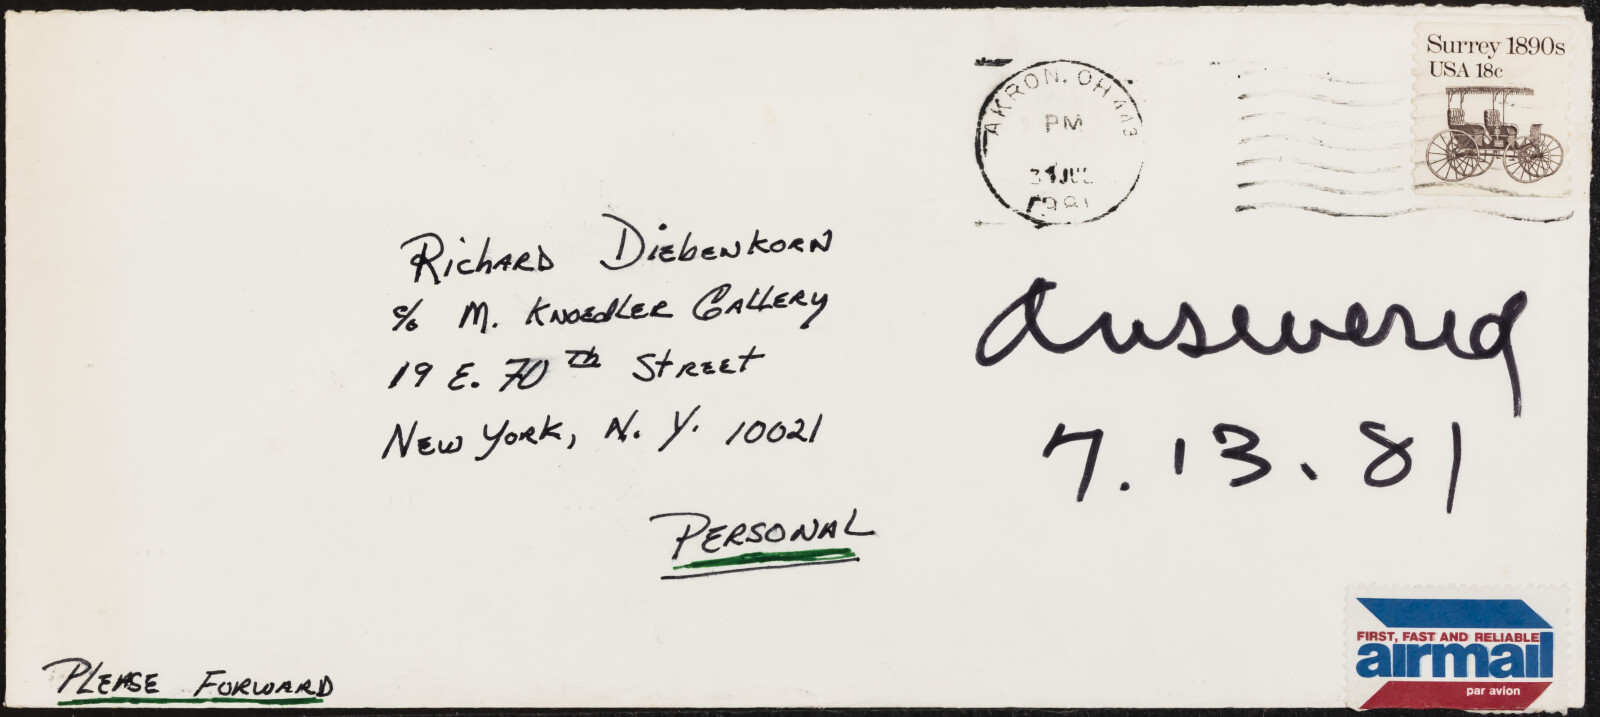 Surrey 1890s
USA 18c
AKRON, OH 443
PM
31 JUL
1981
Richard Diebenkorn
c/o M. Knoedler Gallery
19 E. 70th Street
New York, N. Y. 10021
Personal
Please Forward
Answered
7.13.81
FIRST, FAST AND RELIABLE
airmail
par avion